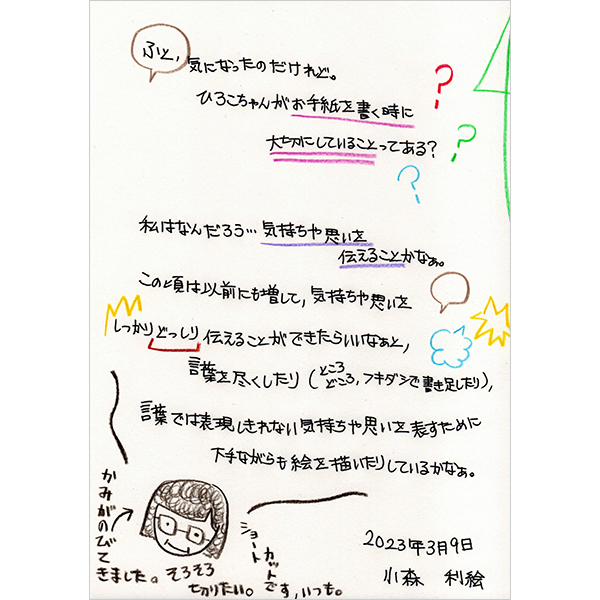 ふと、
気になったのだけれど。
ひろこちゃんがお手紙を書く時に
大切にしていることってある?
?
?
?
私はなんだろう…気持ちや思いを
伝えることかなぁ。
この頃は以前にも増して、気持ちや思いを
しっかりどっしり伝えることができたらいいなぁと、
言葉を尽くしたり(ところどころ、フキダシで書き足したり)、
言葉では表現しきれない気持ちや思いを表すために
下手ながらも絵を描いたりしているかなぁ。
かみがのびて
きました。そろそろ
切りたい。
ショート
カットです、いつも。
2023年3月9日
小森 利絵